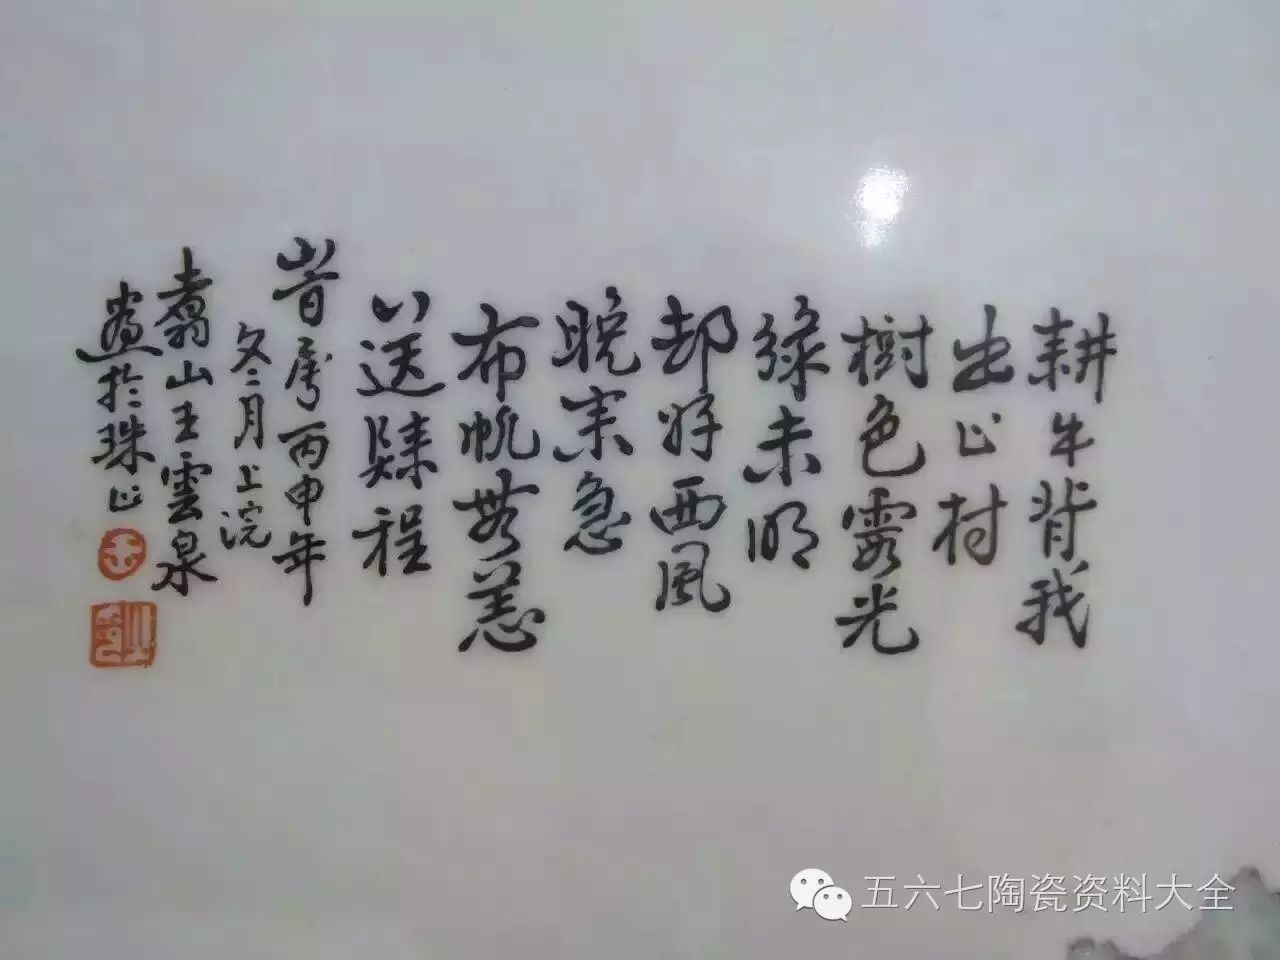 耕牛背我
出山村
樹色露光
綠未明
却好西風
晚来急
布帆無恙
送歸程
旹屬丙申年
冬二月上浣
翥山王雲泉
畫於珠山
五六七陶瓷资料大全